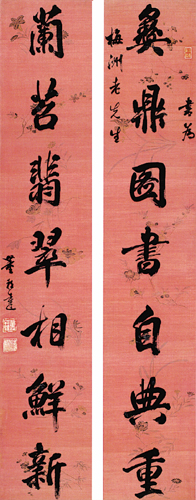 書為
彝鼎圖書自典重
梅洲老先生
蘭苕翡翠相鮮新
董邦達